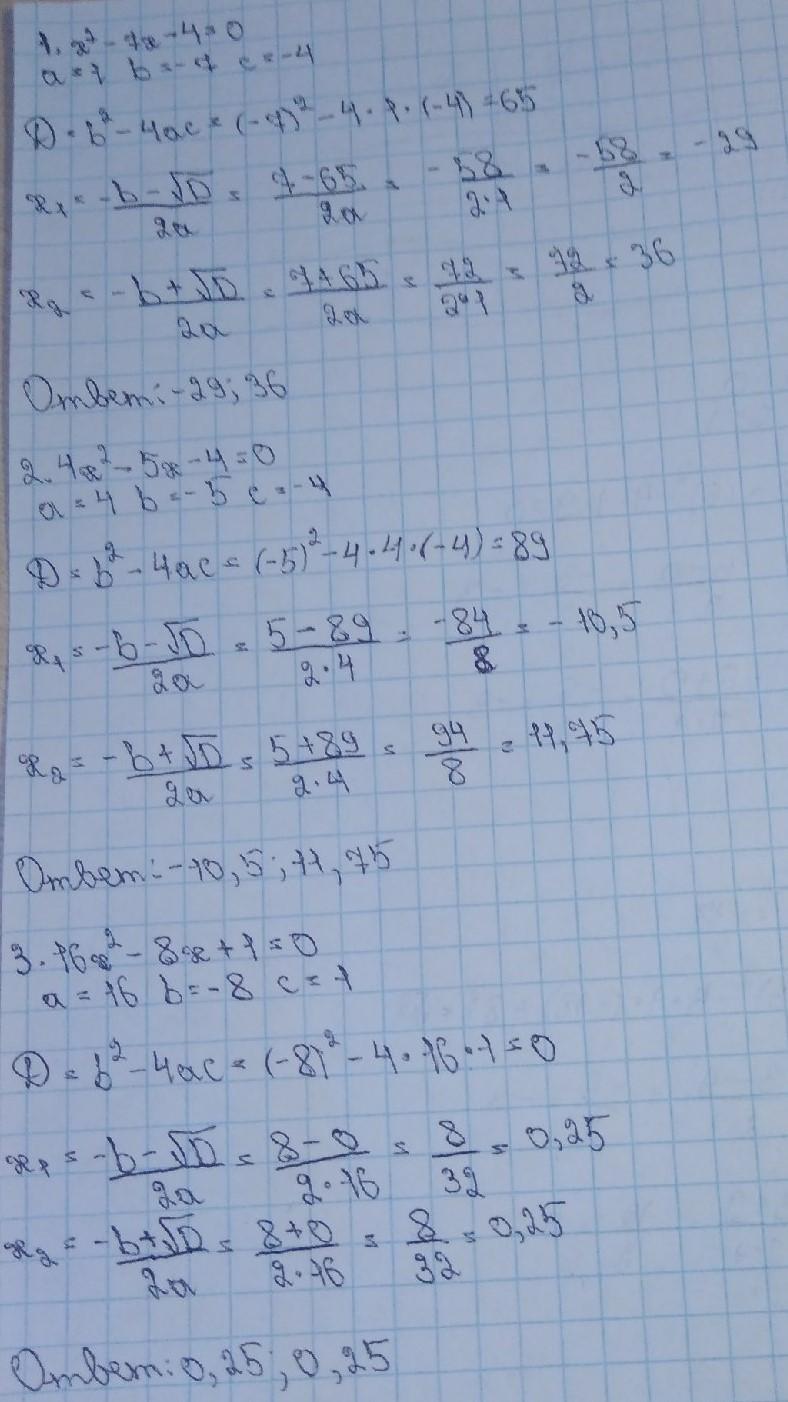 1. x² - 7x - 4 = 0
a = 1 b = -7 c = -4
D = b² - 4ac = (-7)² - 4 · 1 · (-4) = 65
x₁ = -b - √D / 2a = 7 - 65 / 2a = -58 / 2·1 = -58 / 2 = -29
x₂ = -b + √D / 2a = 7 + 65 / 2a = 72 / 2·1 = 72 / 2 = 36
Ответ: -29; 36
2. 4x² - 5x - 4 = 0
a = 4 b = -5 c = -4
D = b² - 4ac = (-5)² - 4 · 4 · (-4) = 89
x₁ = -b - √D / 2a = 5 - 89 / 2·4 = -84 / 8 = -10,5
x₂ = -b + √D / 2a = 5 + 89 / 2·4 = 94 / 8 = 11,75
Ответ: -10,5; 11,75
3. 16x² - 8x + 1 = 0
a = 16 b = -8 c = 1
D = b² - 4ac = (-8)² - 4 · 16 · 1 = 0
x₁ = -b - √D / 2a = 8 - 0 / 2·16 = 8 / 32 = 0,25
x₂ = -b + √D / 2a = 8 + 0 / 2·16 = 8 / 32 = 0,25
Ответ: 0,25; 0,25